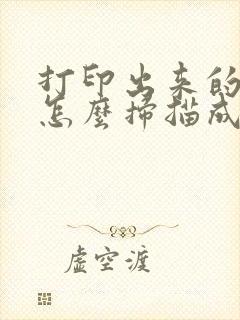 打印出来的
怎麼掃描成
虚空渡